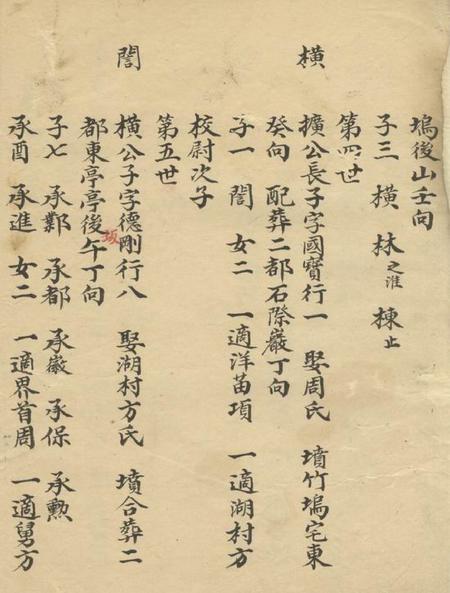 塢後山壬向
子三 橫 林之淮 棟止
第四世
橫
擴公長子字國寶行一 娶周氏 墳竹塢宅東
癸向 配葬二都石際巖丁向
子一 誾 女二 一適洋苗項 一適湖村方
校尉次子
第五世
誾
橫公子字德剛行八 娶湖村方氏 墳合葬二
都東亭亭後坂午丁向
子七 承鄴 承都 承嶶 承保 承勲
承酉 承進 女二 一適界首周 一適舅方